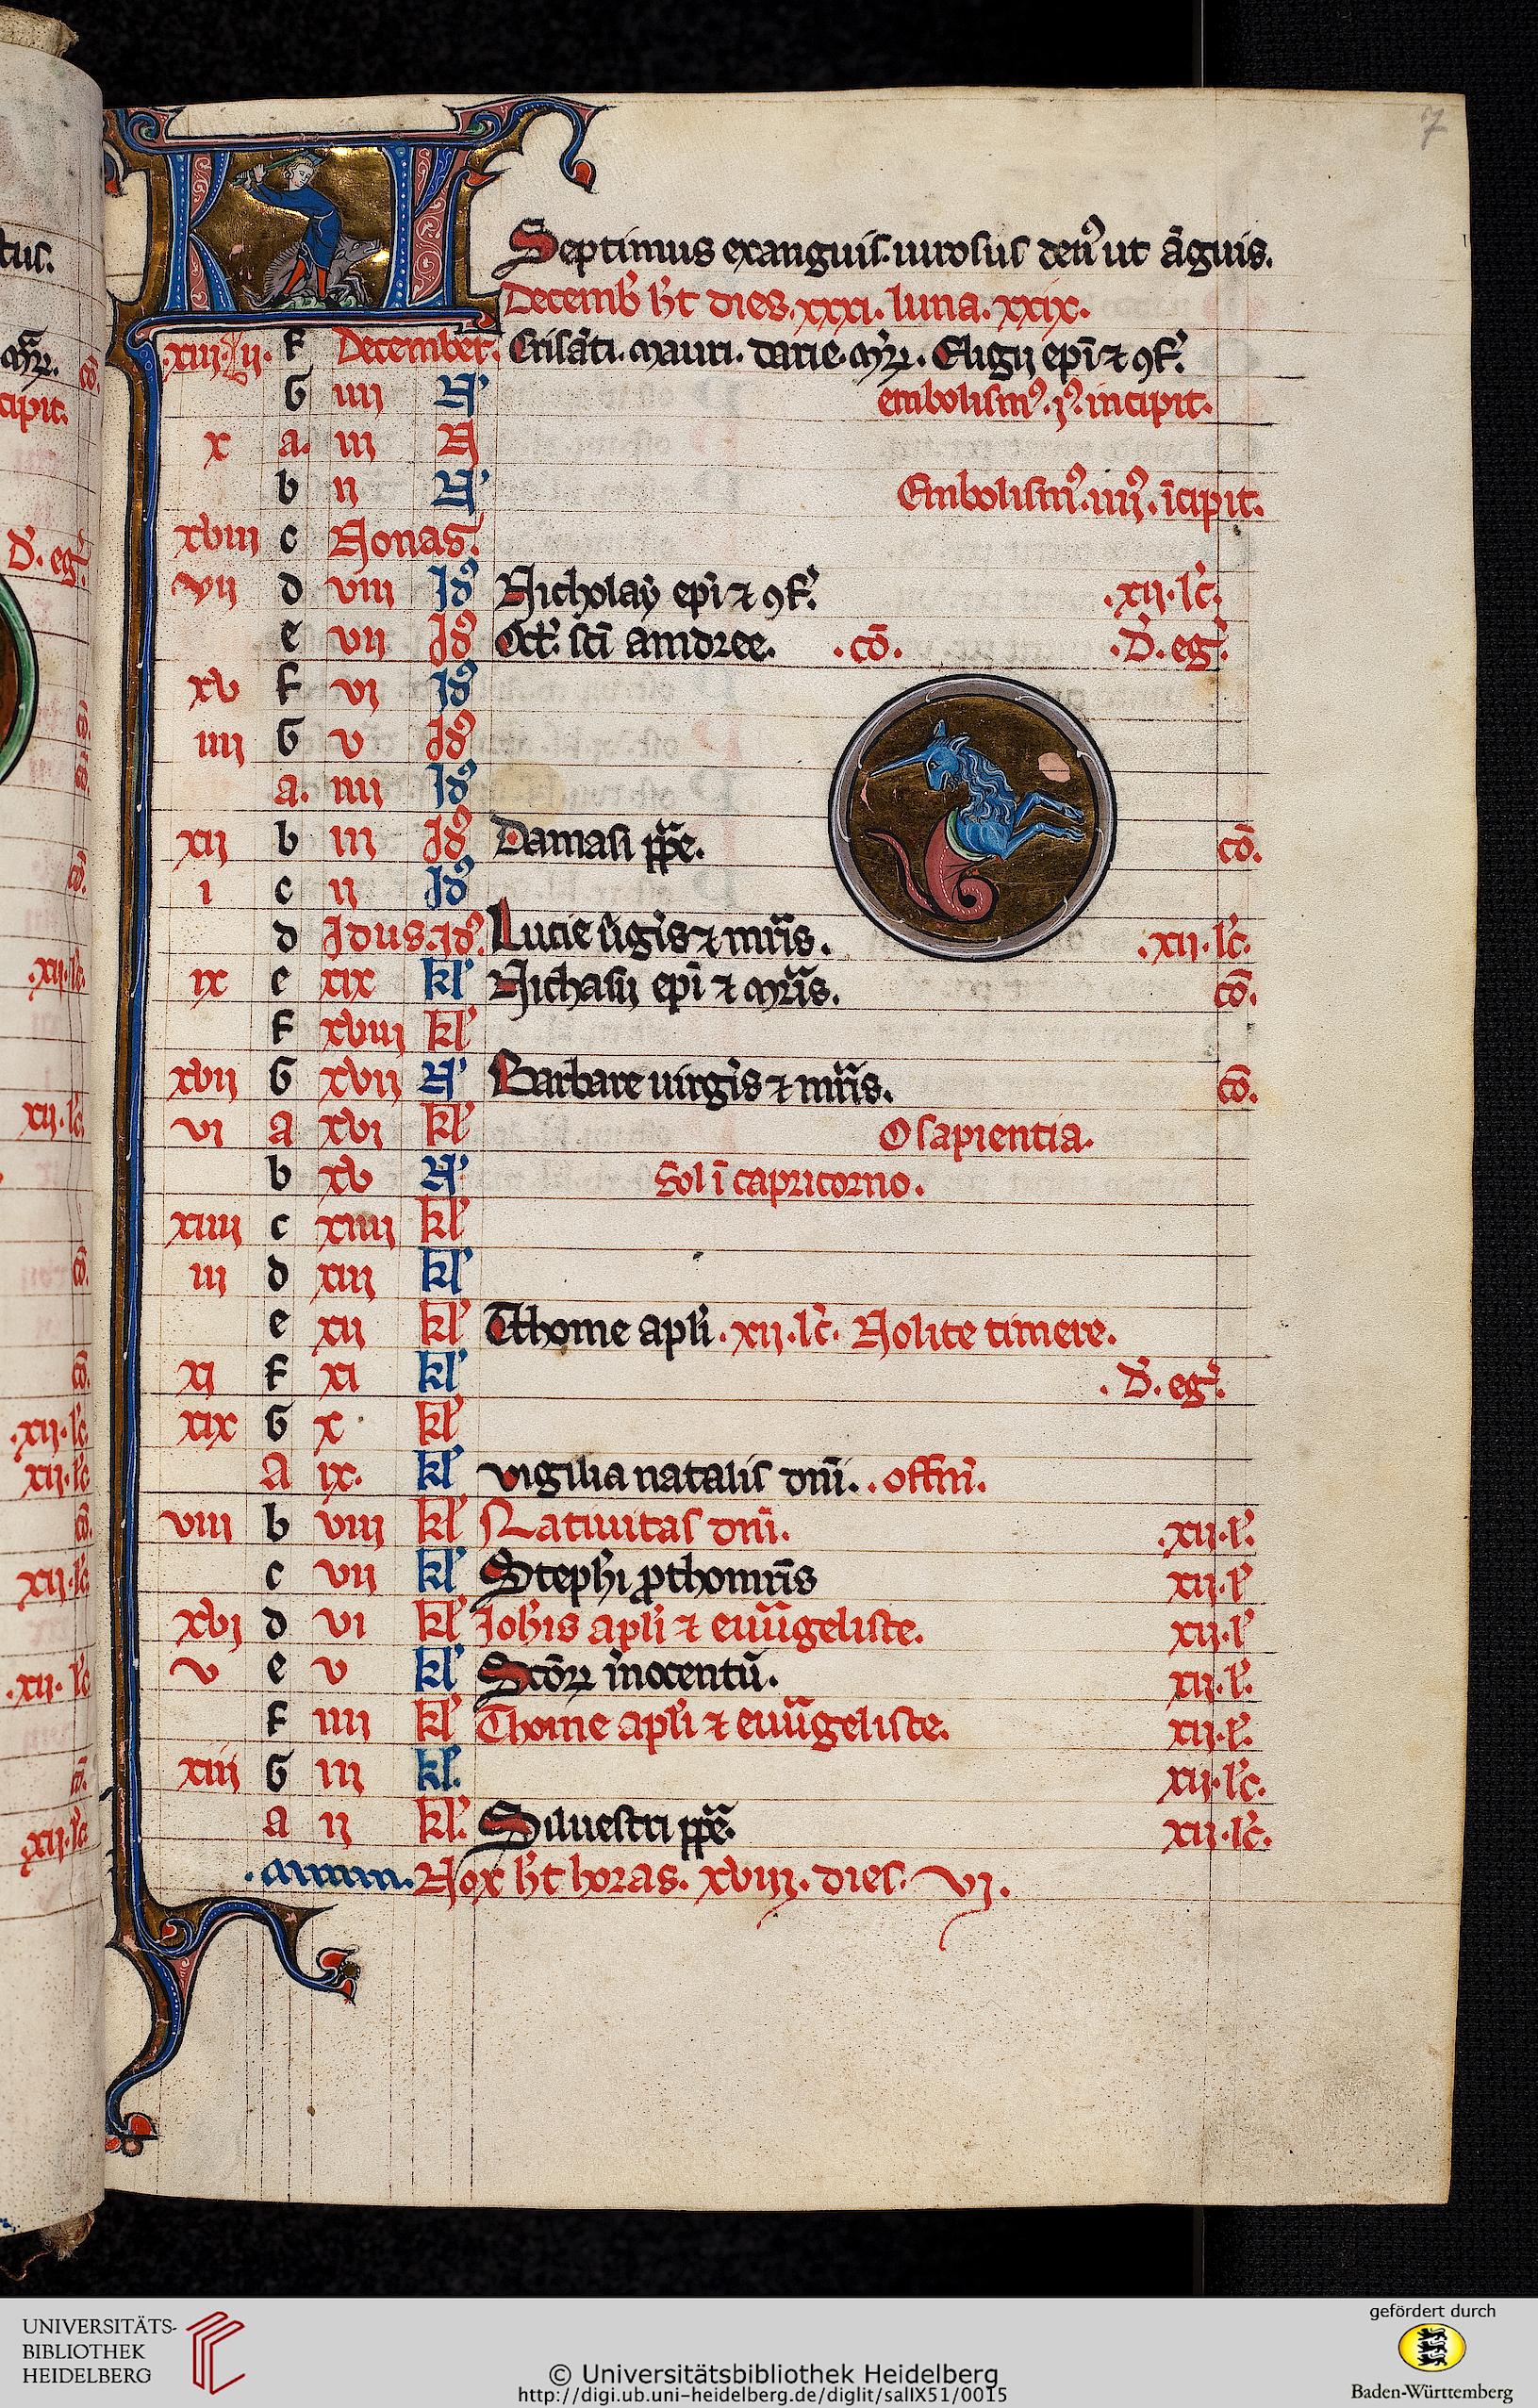 7
Septimus exanguis. uirosus den᾽ ut āguis.
Decemb̄ hт dies. xxxi. luna. xxix.
xiii F December. Crisāti. Mauri. Darie. mr̄ꝝ. Eligij ep̄i ⁊ ꝯf᾽.
G iiii N᾽ embolism᾽. j᾽. incipit.
x a. iii N
b ii N᾽ Embolism᾽. iiij᾽. īcipit.
xviii c Nonas.
vii d viii Id᾽ Nicholaÿ ep̄i ⁊ ꝯf᾽. .xij. lc̄.
e vii Id᾽ Oct᾽. sc̄i andree. .cō. .D᾽. eg᾽.
xv F vi Id᾽
iiii G v Id᾽
a. iiii Id᾽
xii b iii Id᾽ Damasi pp̄e. cō.
i c ii Id᾽
d Idus. Id᾽. Lucie ūgĩs ⁊ mr̄is. .xii. lc̄.
ix e xix kl᾽ Nichasij ep̄i ⁊ mr̄is. cō.
F xviii kl᾽
xvii G xvii N᾽ Barbare uirgĩs ⁊ mr̄is. cō.
vi a xvi kl᾽ O sapientia.
b xv N᾽ Sol ī capricorno.
xiiii c xiiii kl᾽
iii d xiii kl᾽
e xii kl᾽ Thome apl̄i. xij. lc̄. Nolite timere.
xi F xi kl᾽ . D᾽. eg᾽.
xix G x kl᾽
a ix. kl᾽ vigilia natalis dn̄i. . offm̄.
viii b viii kl᾽ Natiuitas dn̄i. .xij. l᾽.
c vii kl᾽ Steph̄i ꝓthomr̄is xij. l᾽
xvi d vi kl᾽ Ioh̄is apl̄i ⁊ euuāgeliste. xij. l᾽
v e v kl᾽ Scōꝝ inocentū. xij. l᾽.
F iiii kl᾽ Thome apl̄i ⁊ euuāgeliste. xij. l᾽.
xiii G iii kl᾽. xij. lc̄.
a ii kl᾽. Siluestri pp̄e. xij. lc̄.
Nox hт horas. xviij. dies. vj.
UNIVERSITÄTS-
BIBLIOTHEK
HEIDELBERG
© Universitätsbibliothek Heidelberg
http://digi.ub.uni-heidelberg.de/diglit/salIX51/0015
gefördert durch
Baden-Württemberg